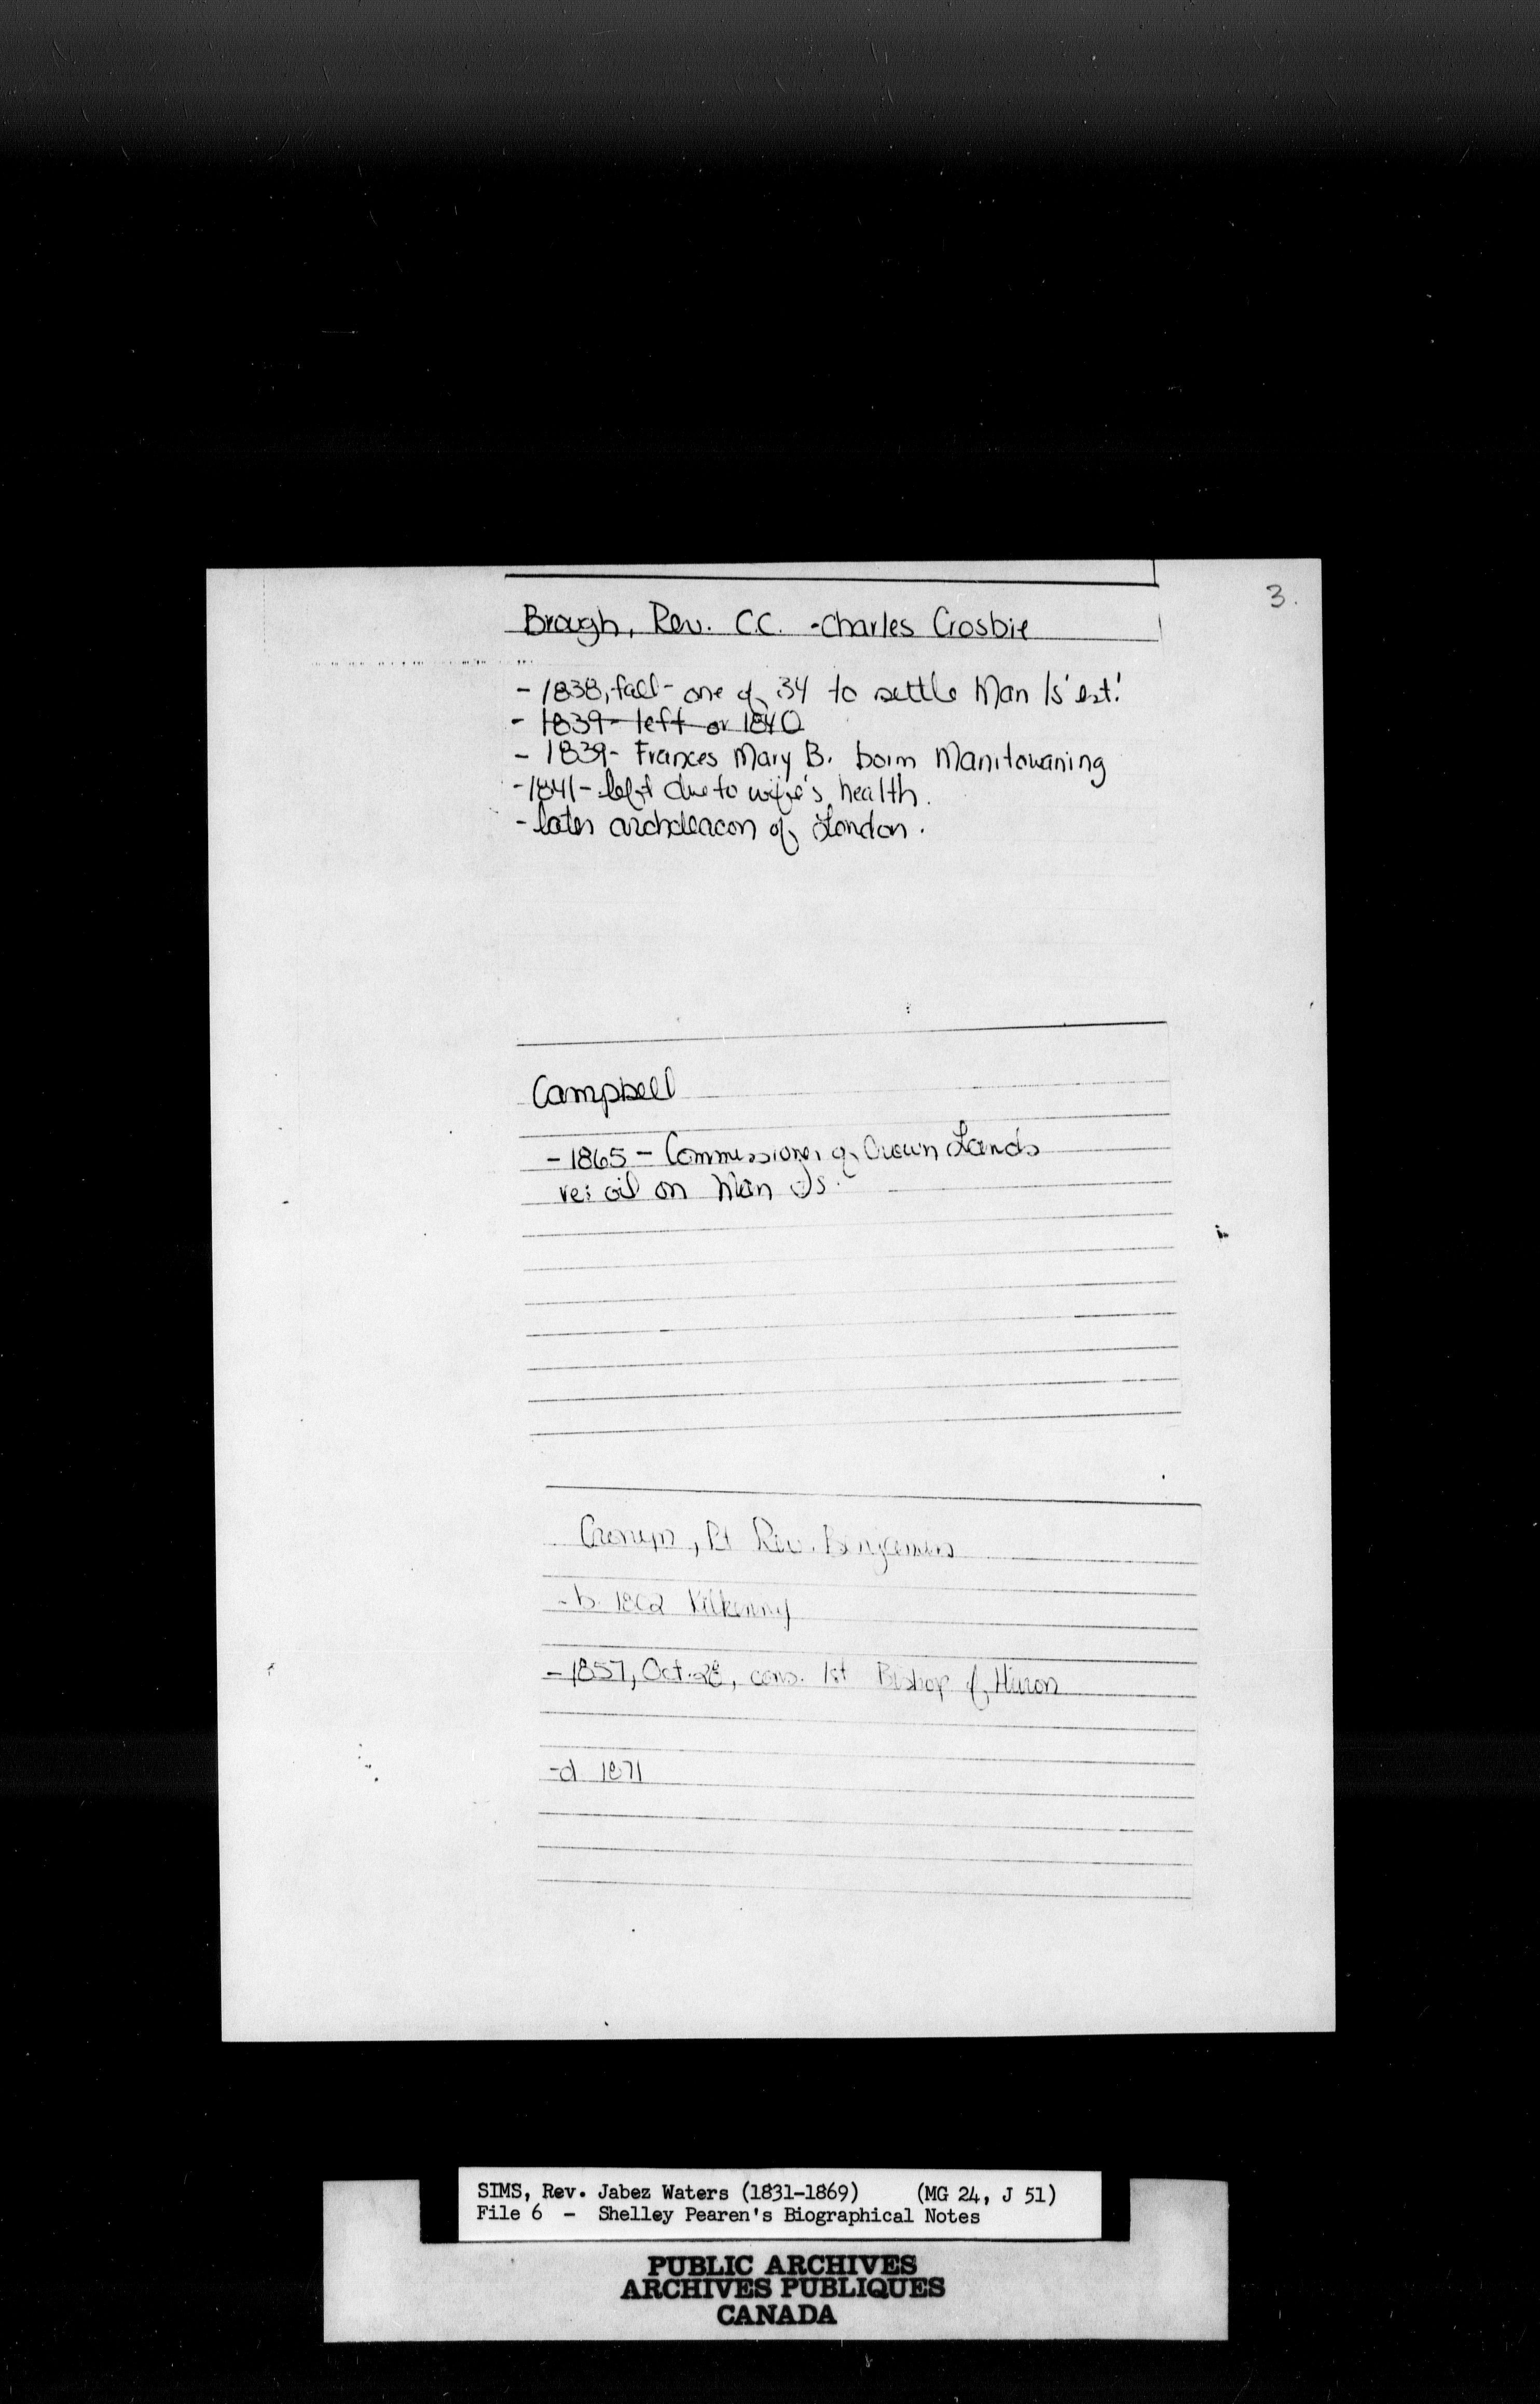 3.
Brough, Rev. C.C. - Charles Crosbie
- 1838, fall - one of 34 to settle Man Is 'est.'
- 1839 - left or 1840
- 1839 - Frances Mary B. born Manitowaning
- 1841 - left due to wife's health.
- later archdeacon of London.
Campbell
- 1865 - Commissioner of Crown Lands
re: oil on Man Is.
Cronyn, Rt Rev. Benjamin
- b. 1802 Kilkenny
- 1857, Oct. 28, cons. 1st Bishop of Huron
- d 1871
SIMS, Rev. Jabez Waters (1831-1869) (MG 24, J 51)
File 6 - Shelley Pearen's Biographical Notes
PUBLIC ARCHIVES
ARCHIVES PUBLIQUES
CANADA